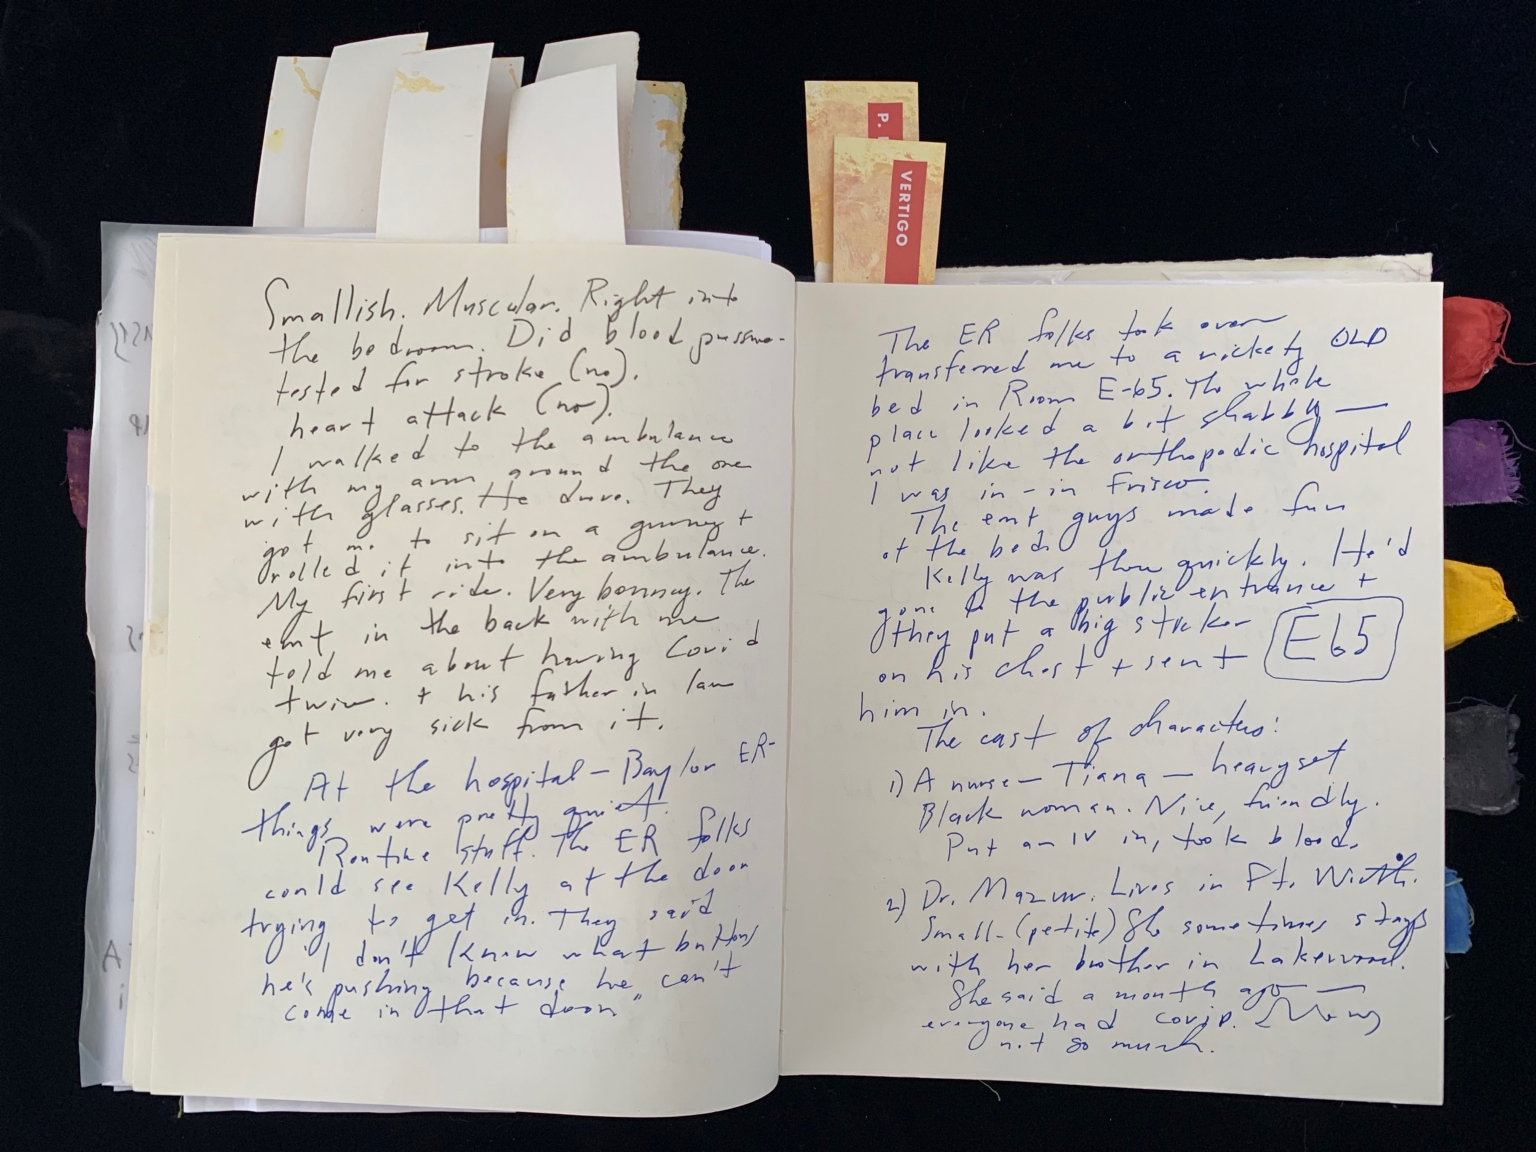 P.
VERTIGO
Smallish. Muscular. Right into
the bedroom. Did blood pressure-
tested for stroke (no).
heart attack (no).
I walked to the ambulance
with my arm around the one
with glasses. He drove. They
got me to sit on a gurney +
rolled it into the ambulance.
My first ride. Very bouncy. The
emt in the back with me
told me about having Covid
twice. + his father in law
got very sick from it.
At the hospital - Baylor ER-
things were pretty quiet.
Routine stuff. The ER folks
could see Kelly at the door
trying to get in. They said
"I don't know what buttons
he's pushing because he can't
come in that door"
The ER folks took over
transferred me to a rickety OLD
bed in Room E-65. The whole
place looked a bit shabby —
not like the orthopedic hospital
I was in - in Frisco.
The emt guys made fun
of the bed.
Kelly was there quickly. He'd
gone to the public entrance +
they put a big sticker E65
on his chest + sent
him in.
The cast of characters:
1) A nurse - Tiana - heavyset
Black woman. Nice, friendly.
Put an IV in, took blood.
2) Dr. Mazur. Lives in Ft. Worth.
Small - (petite) She sometimes stays
with her brother in Lakewood.
She said a month ago —
everyone had covid. Now
not so much.